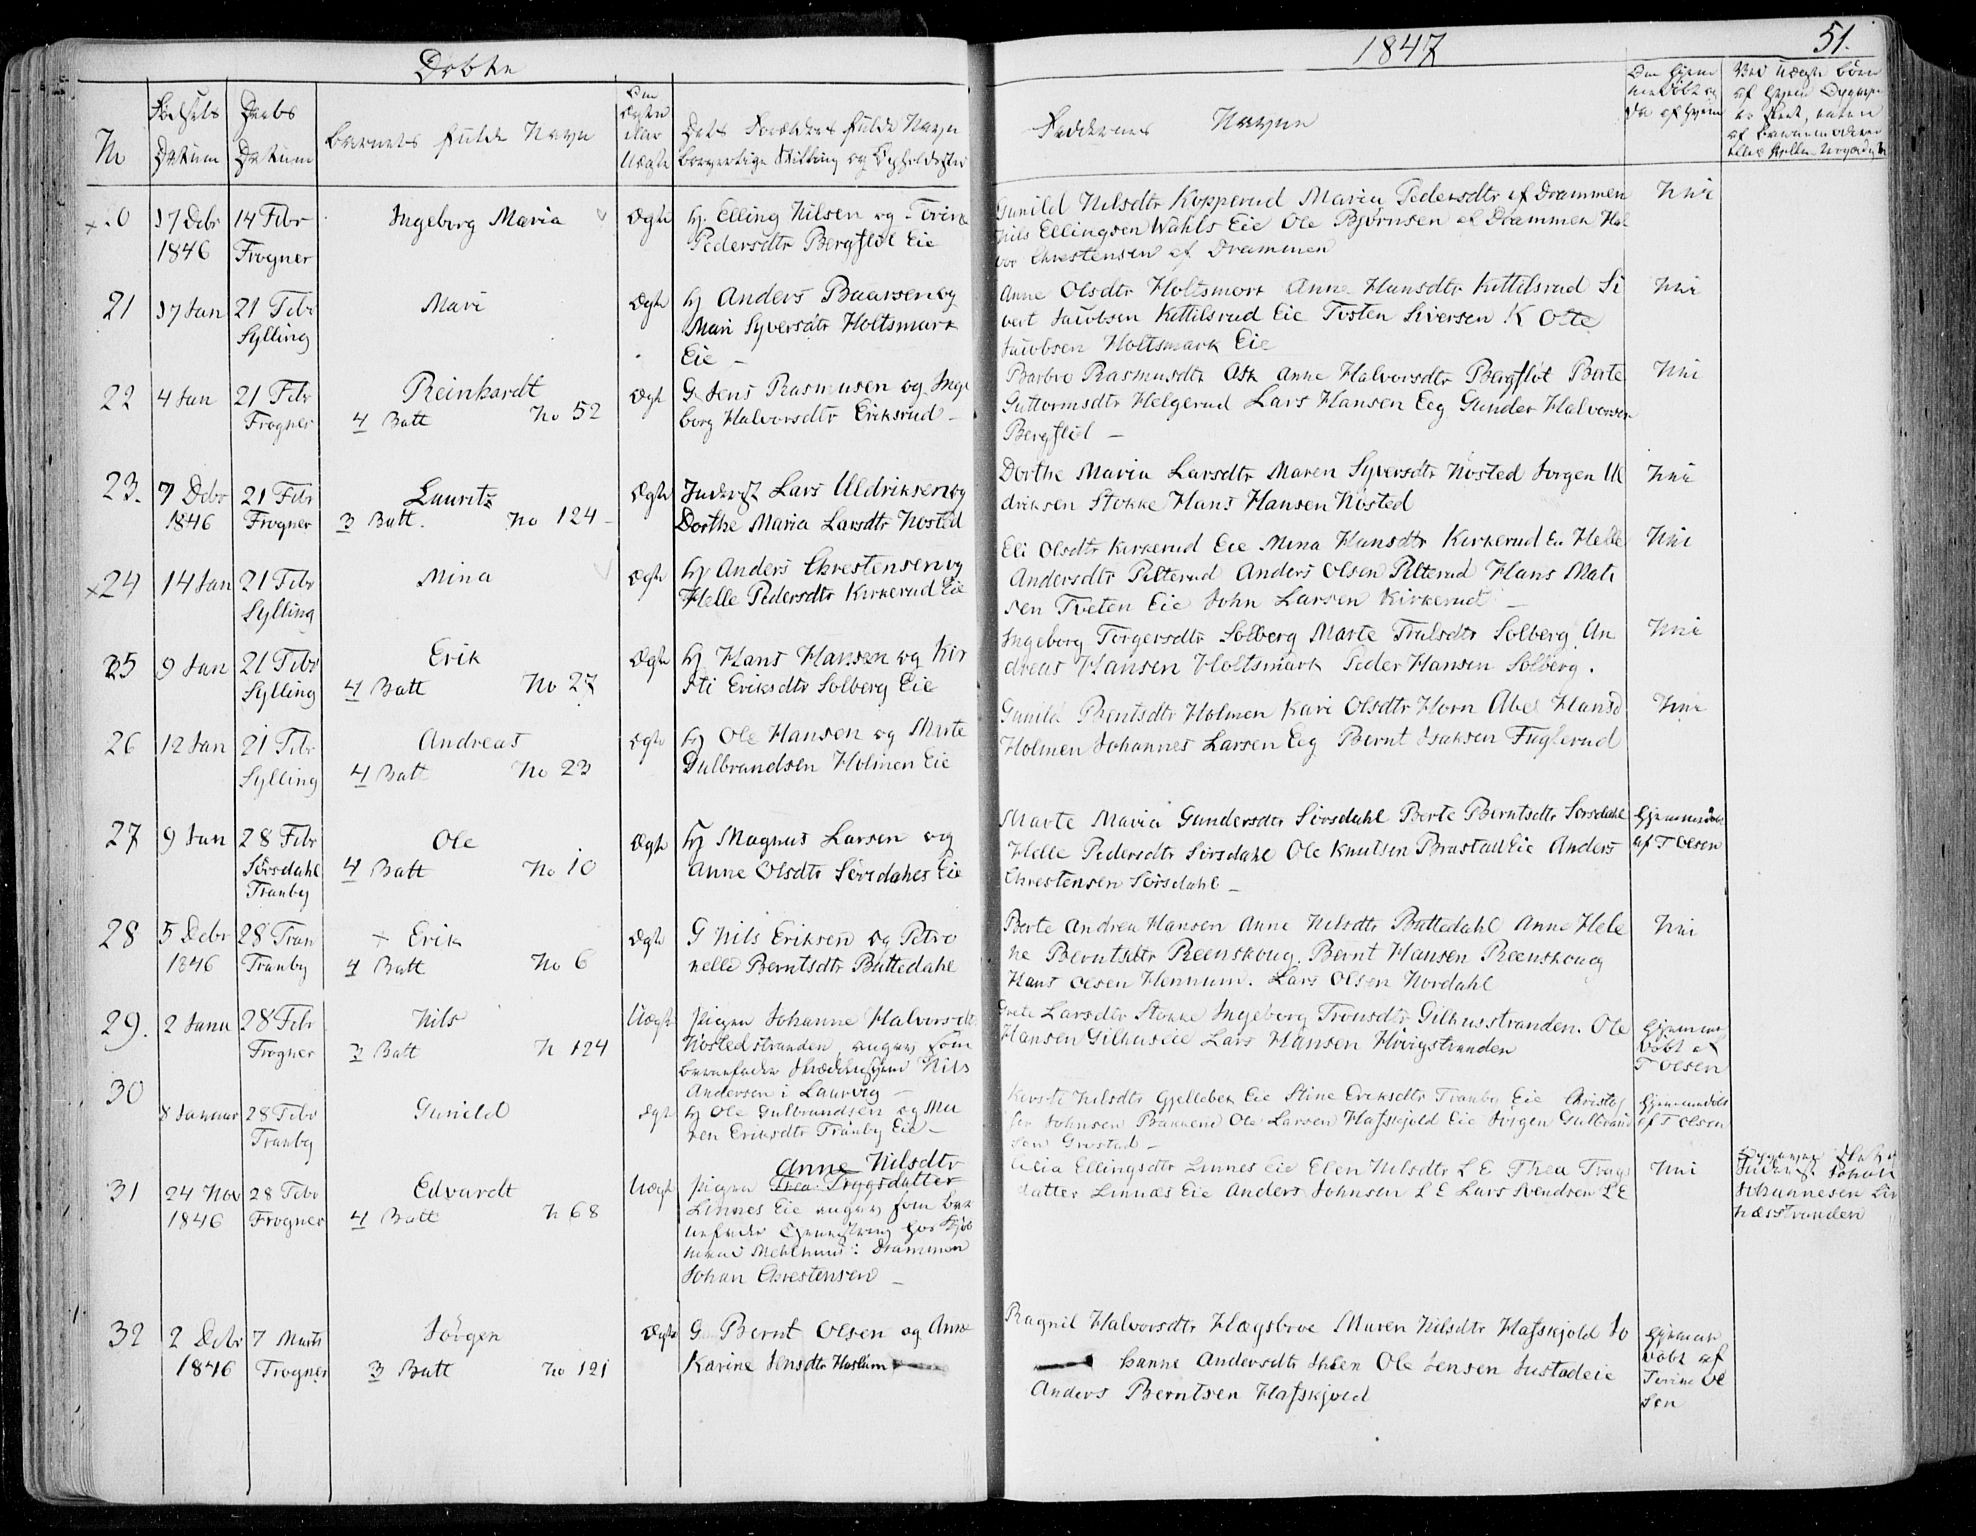 Døbte
1847
51.
No
Fødsels Datum
Daabs Datum
Barnets fulde Navn
Om Ægte eller Uægte
Dets Forældres fulde Navn borgerlige Stilling og Opholdssted
Faddernes Navne
20
17 Debr
1846
14 Febr
Frogner
Ingeborg Maria
Ægte
Elling Nilsen og
Pedersdtr Bergfløt Eie
Gunild Nilsdtr Kopperud Maria Pedersdtr af Drammen
Nils Ellingsen Wahls Eie Ole Bjørnsen af Drammen Hal
vor Chrestensen af Drammen
Nei
21
17 Jan
21 Febr
Sylling
Mari
Ægte
Anders Baarsen og
Mari Syversdtr Holtsmark
Eie –
Anne Olsdtr Holtsmark Anne Hansdtr Kittilsrud Si
vert Jacobsen Kittilsrud Eie Tosten Siversen K Ole
Jacobsen Holtsmark Eie
Nei
22
4 Jan
21 Febr
Frogner
Reinhardt
4 Batt No 52
Ægte
G Jens Rasmusen og Inge
borg Halvorsdtr Eriksrud –
Barbro Rasmusdtr Ask Anne Halvorsdtr Bergfløt Berte
Guttormsdtr Helgerud Lars Hansen Eeg Gunder Halvorsen
Bergfløt –
Nei
23.
7 Debr
1846
21 Febr
Frogner
Lauritz
3 Batt. No 124
Ægte
Inderst Lars Uldriksen og
Dorthe Maria Larsdtr Nøsted
Dorthe Maria Larsdtr Maren Syversdtr Nøsted Jørgen Ul
driksen Stokke Hans Hansen Nøsted
Nei
24
14 Jan
21 Febr
Sylling
Mina
Ægte
Anders Chrestensen og
Helle Pedersdtr Kirkerud Eie
Eli Olsdtr Kirkerud Eie Mina Hansdtr Kirkerud Ei Helle
Andersdtr Pilterud Anders Olsen Pilterud Hans Mati
sen Tveten Eie John Larsen Kirkerud –
Nei
25
9 Jan
21 Febr
Sylling
Erik
4 Batt No 27
Ægte
Hans Hansen og Kir
sti Eriksdtr Solberg Eie
Ingeborg Torgersdtr Solberg Marte Trulsdtr Solberg An
dreas Hansen Holtsmark Peder Hansen Solberg.
Nei
26
12 Jan
21 Febr
Sylling
Andreas
4 Batt No 23
Ægte
Ole Hansen og Marte
Gulbrandsen Holmen Eie
Gunild Berntsdtr Holmen Kari Olsdtr Horn Abel Hansd
Holmen Johannes Larsen Eeg Bernt Isaksen Fuglerud
Nei
27
9 Jan
28 Febr
Sørsdahl
Tranby
Ole
4 Batt No 10
Ægte
Magnus Larsen og
Anne Olsdtr Sørsdahls Eie
Marte Maria Gundersdtr Sørsdahl Berte Berntsdtr Sørsdahl
Helle Pedersdtr Sørsdahl Ole Knutsen Brastad Eie Anders
Chrestensen Sørsdahl –
af T Olsen
28
5 Debr
1846
28 Febr
Tranby
+ Erik
4 Batt No 6
Ægte
G Nils Eriksen og Petro
nelle Berntsdtr Buttedahl
Berte Andrea Hansen Anne Nilsdtr Buttedahl Anne Hele
ne Berntsdtr Reenskoug. Bernt Hansen Reenskoug
Hans Olsen Hennum. Lars Olsen Nordahl
Nei
29.
2 Janu
28 Febr
Frogner
Nils
3 Batt N 124
Uægte
Pigen Johanne Halvorsdt
Nøstedstranden, angav som
barnefader Nils
Andersen i Laurvig –
Grete Larsdtr Stokke Ingeborg Tronsdtr Gilhusstranden. Ole
Hansen Gilhuseie Lars Hansen Høvigstranden
Hjemme
døbt af
T Olsen
30
8 Januar
28 Febr
Tranby
Gunild
Ægte
Ole Gulbrandsen og Ma
ren Eriksdtr Tranby Eie –
Kirste Nilsdtr Gjellebek Eie Stine Eriksdtr Tranby Eie Christof
fer Johnsen Ole Larsen Hafskjold Eie Jørgen Gulbrand
sen –
Hjemmedøbt
af T Olsen
31
24 Nov
1846
28 Febr
Frogner
Edvardt
4 Batt N 68
Uægte
Anne Nilsdtr
Pigen Thea Trygsdatter
Linnes Eie angav som bar
nefader hos Kjøb
mand i Drammen
Johan Chrestensen –
Ellingsdtr Linnes Eie Elen Nilsdtr L E Thea Tryg
datter Linnæs Eie Anders Johnsen L E Lars Svendsen L E
Nei
Johan
Johannesen Lin
næsstranden
32
2 Debr
1846
7 Marts
Frogner
Jørgen
3 Batt No 121
Ægte
G Bernt Olsen og Anne
Karine Jensdtr Haslum
Ragnil Halvorsdtr Hægsbroe Maren Nilsdtr Hafskjold Jo
hanne Andersdtr Ole Jensen Justadeie
Anders Berntsen Hafskjold
Hjemme
døbt af
Terine Ol
sen